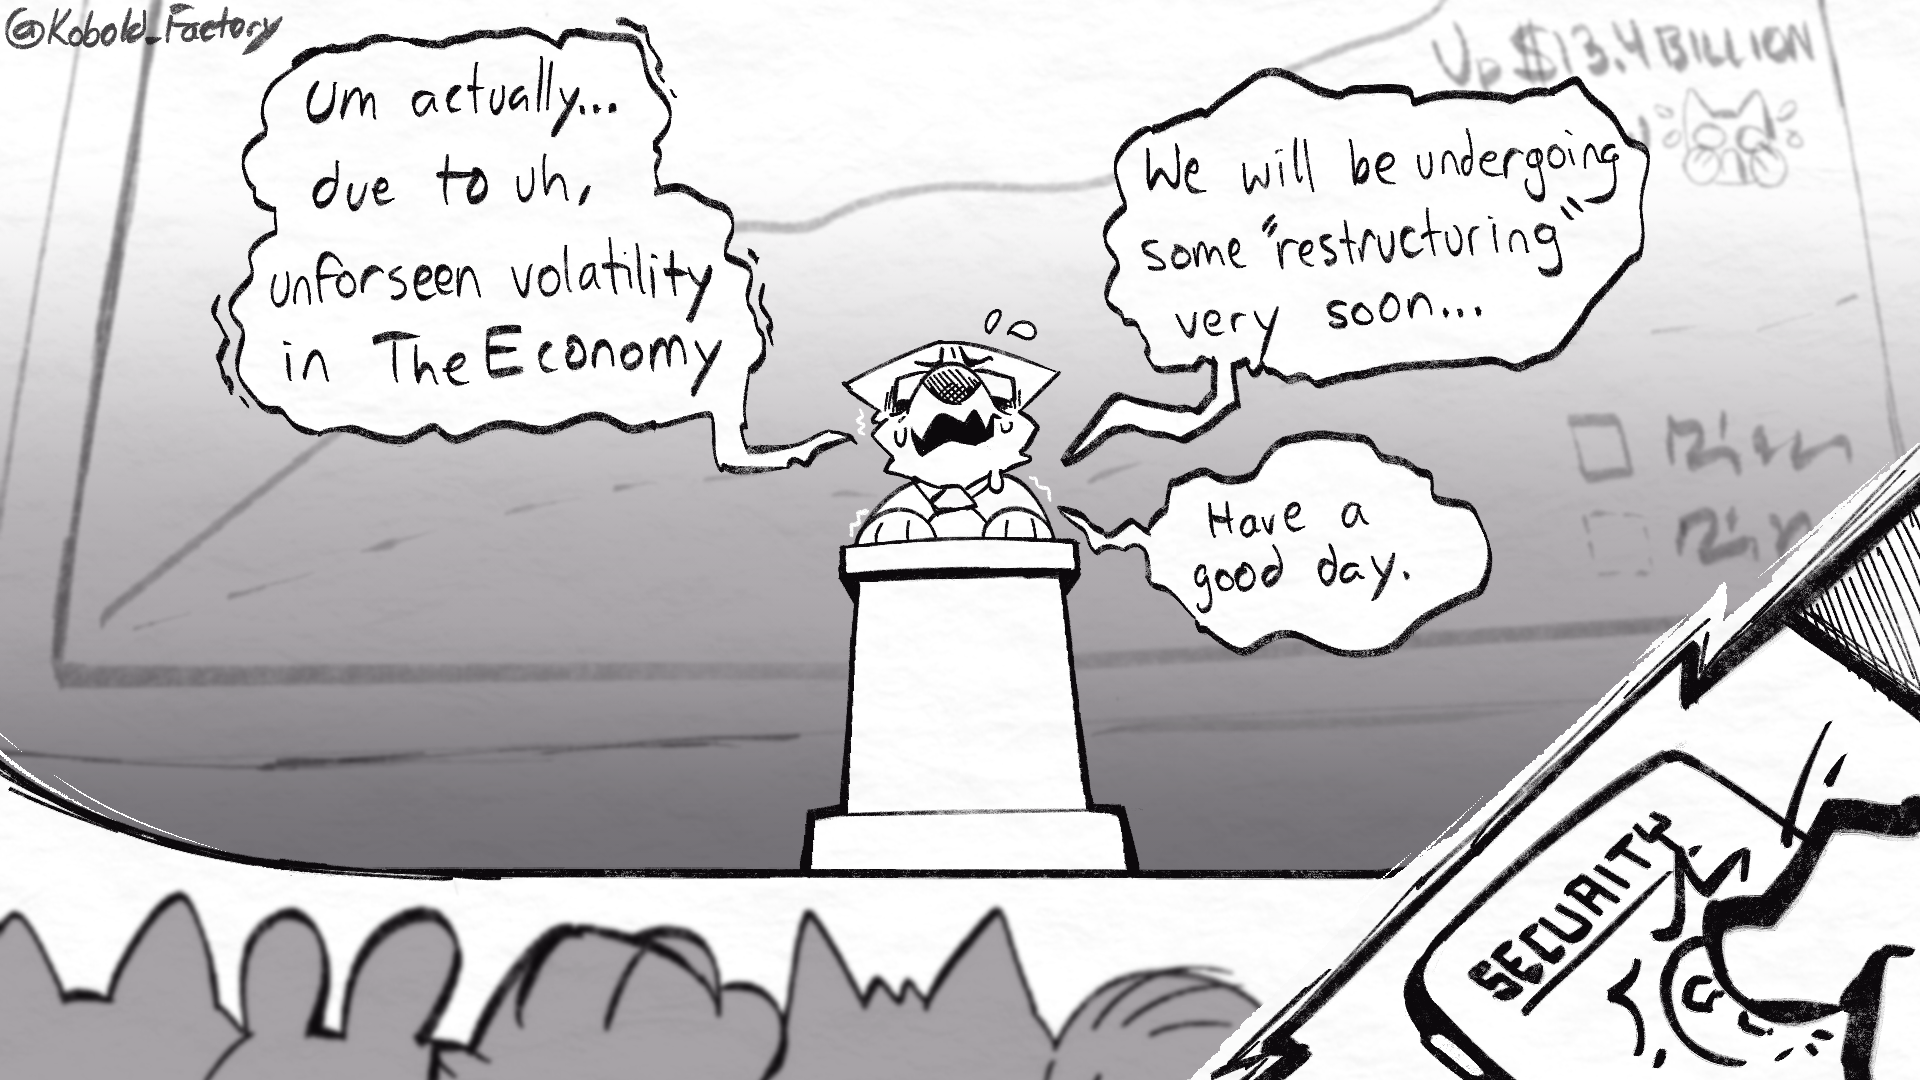 @Kobold_Factory
Um actually...
due to uh,
unforseen volatility
in The Economy
Up $13.4 BILLION
We will be undergoing
some "restructuring"
very soon...
Have a
good day.
SECURITY